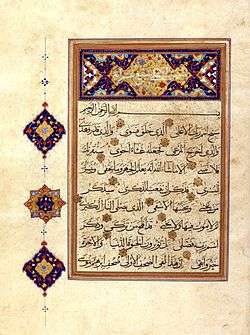 بسم الله الرحمن الرحيم
سبح اسم ربك الاعلى الذي خلق فسوى والذي قدر فهدى
والذي اخرج المرعى فجعله غثاء احوى سنقرئك
فلا تنسى الا ما شاء الله انه يعلم الجهر وما يخفى ونيسرك
لليسرى فذكر ان نفعت الذكرى سيذكر
من يخشى ويتجنبها الاشقى الذي يصلى النار
الكبرى ثم لا يموت فيها ولا يحيى قد افلح من تزكى وذكر
اسم ربه فصلى بل تؤثرون الحيوة الدنيا والاخرة
خير وابقى ان هذا لفي الصحف الاولى صحف ابراهيم وموسى